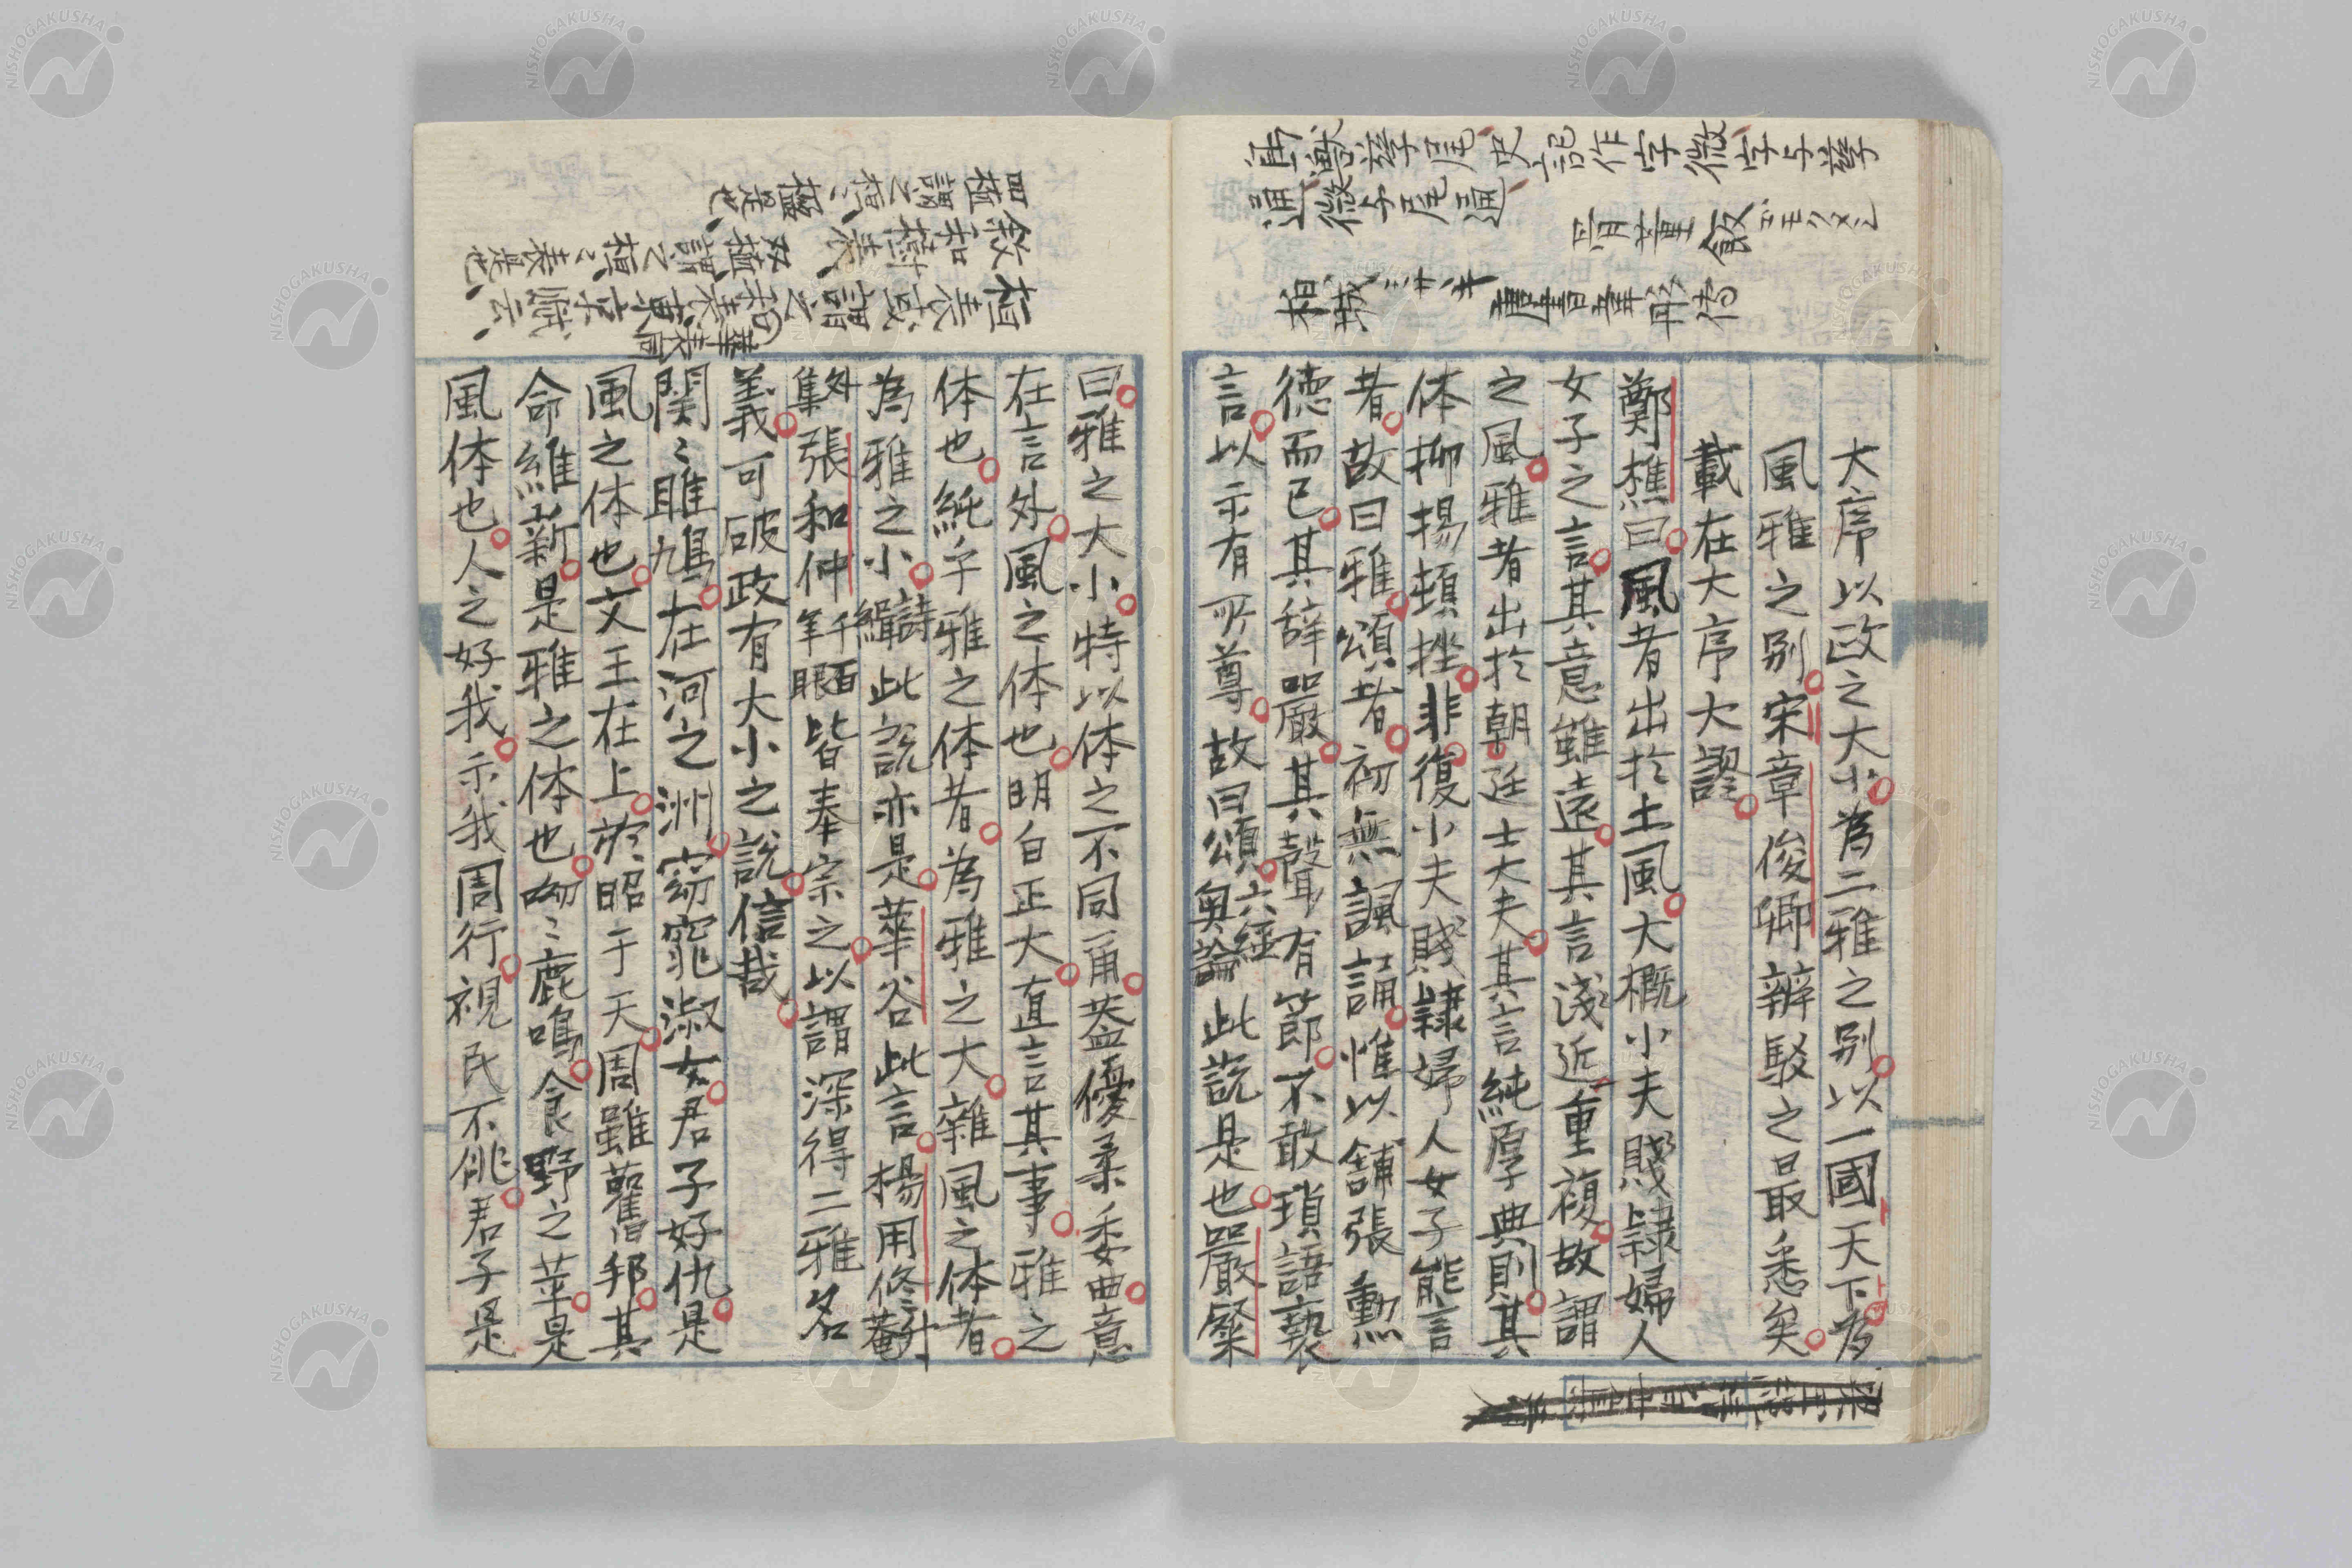 大序以政之大小為二雅之別以一國天下為
風雅之別宋章俊卿辨駁之最悉矣
載在大序大謬
鄭樵曰風者出於土風大概小夫賤隸婦人
女子之言其意雖遠其言淺近重複故謂
之風雅者出於朝廷士大夫其言純厚典則其
体抑揚頓挫非復小夫賤隸婦人女子能言
者故曰雅頌者初無諷誦惟以舗張勳
德而已其辞嚴其聲有節不敢瑣語褻
言以示有所尊故曰頌六經奧論此説是也嚴粲
曰雅之大小特以体之不同爾蓋優柔委曲意
在言外風之体也明白正大直言其事雅之
体也純乎雅之体者為雅之大雜風之体者
為雅之小詩緝此説亦是華谷此言楊用修升菴
外集張和仲千百年眼皆奉宗之以謂深得二雅名
義可破政有大小之説信哉
関〻雎鳩在河之洲窈窕淑女君子好仇是
風之体也文王在上於昭于天周雖舊邦其
命維新是雅之体也呦〻鹿鳴食野之苹是
風体也人之好我示我周行視民不佻君子是
鳥獣孳尾史記作字微字与孳
通微子尾通